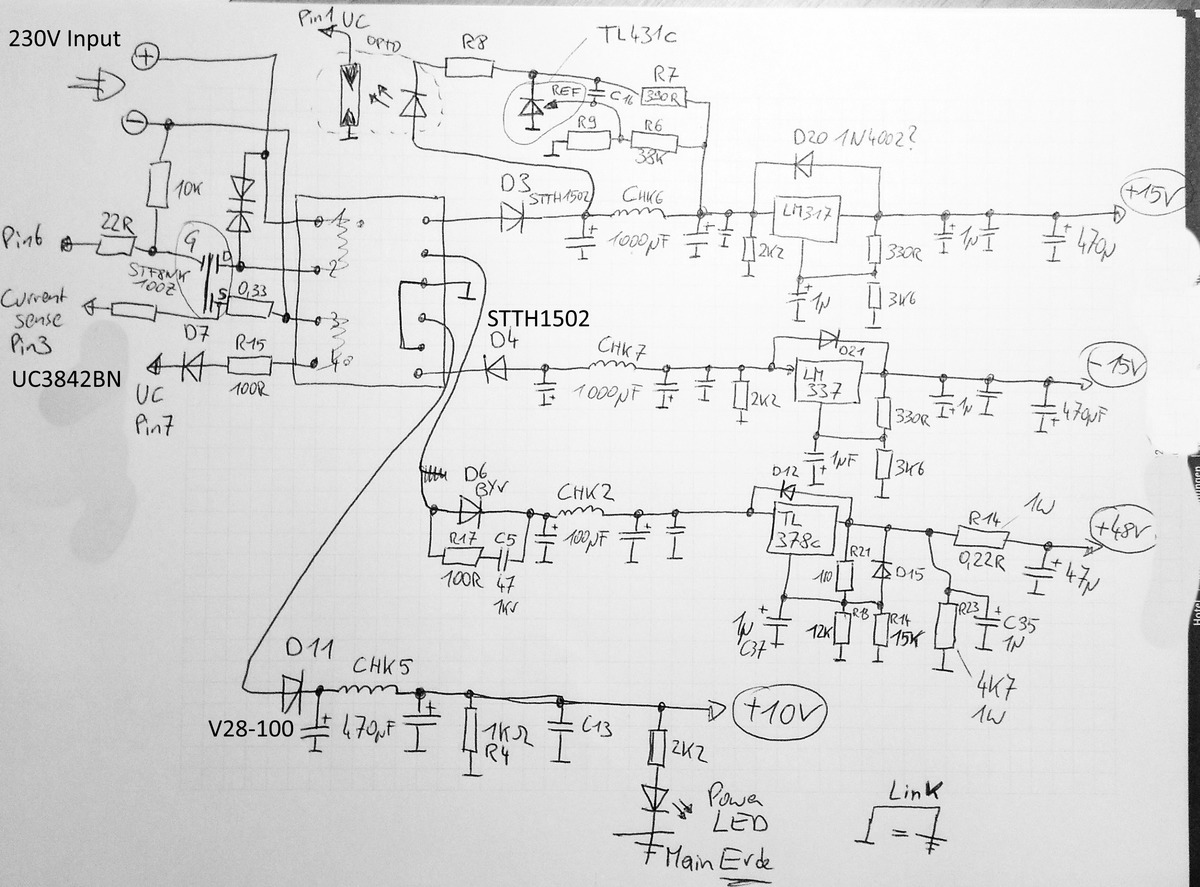 230V Input
+
−
Pin1 UC
OPTO
R8
TL431c
REF
C16
R7
330R
R9
R6
33K
10K
22R
Pin6
G
D
S
STF8NK
100Z
0,33
Current
sense
Pin3
UC3842BN
D7
R15
100R
UC
Pin7
1
2
3
4
D3
STTH1502
CHK6
1000µF
2K2
D20 1N4002?
LM317
330R
3K6
1µ
1µ
470µ
+15V
STTH1502
D4
CHK7
1000µF
2K2
D21
LM
337
330R
3K6
1µF
1µ
470µF
-15V
D6
BYV
R17
100R
C5
47
1KV
CHK2
100µF
D12
TL
378c
R21
110
D15
1µ
C37
12K
R18
R14
15K
R14
1W
0,22R
47µ
+48V
R23
C35
1µ
4K7
1W
D11
V28-100
CHK5
470µF
1KΩ
R4
C13
2K2
+10V
Power
LED
Main Erde
Link
=